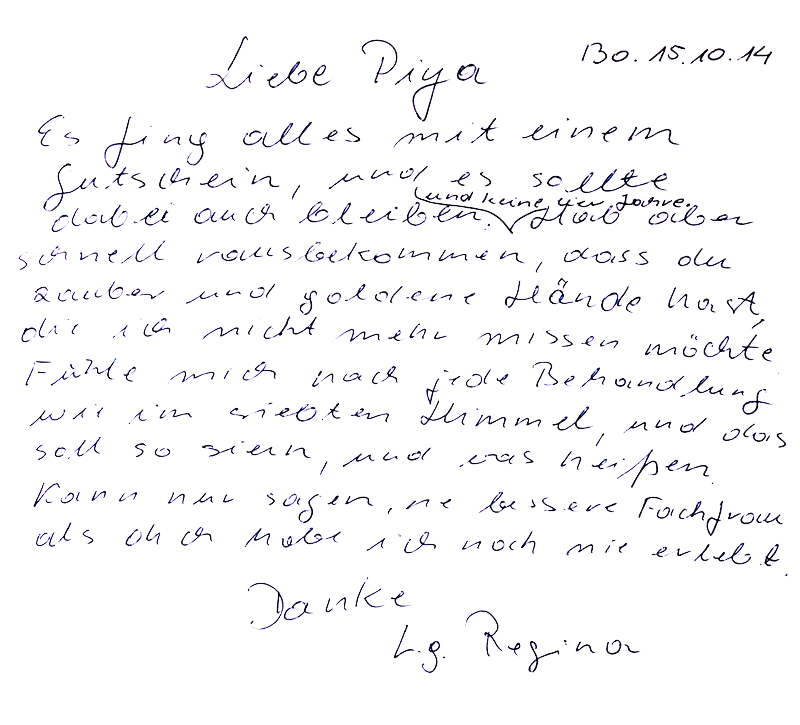 Bo. 15.10.14
Liebe Piya
Es fing alles mit einem
Gutschein, und es sollte
dabei auch bleiben, (und keine vier Jahre. Hab aber
schnell rausbekommen, dass du
zauber und goldene Hände hast,
die ich nicht mehr missen möchte
Fühle mich nach jede Behandlung
wie im siebten Himmel, und das
soll so
sein, und was heißen.
Kann nur sagen, ne bessere Fachfrau
als dich habe ich noch nie erlebt.
Danke
L.g. Regina